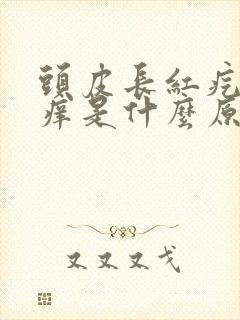 頭皮長紅疙
癢是什麼原
又又又戈